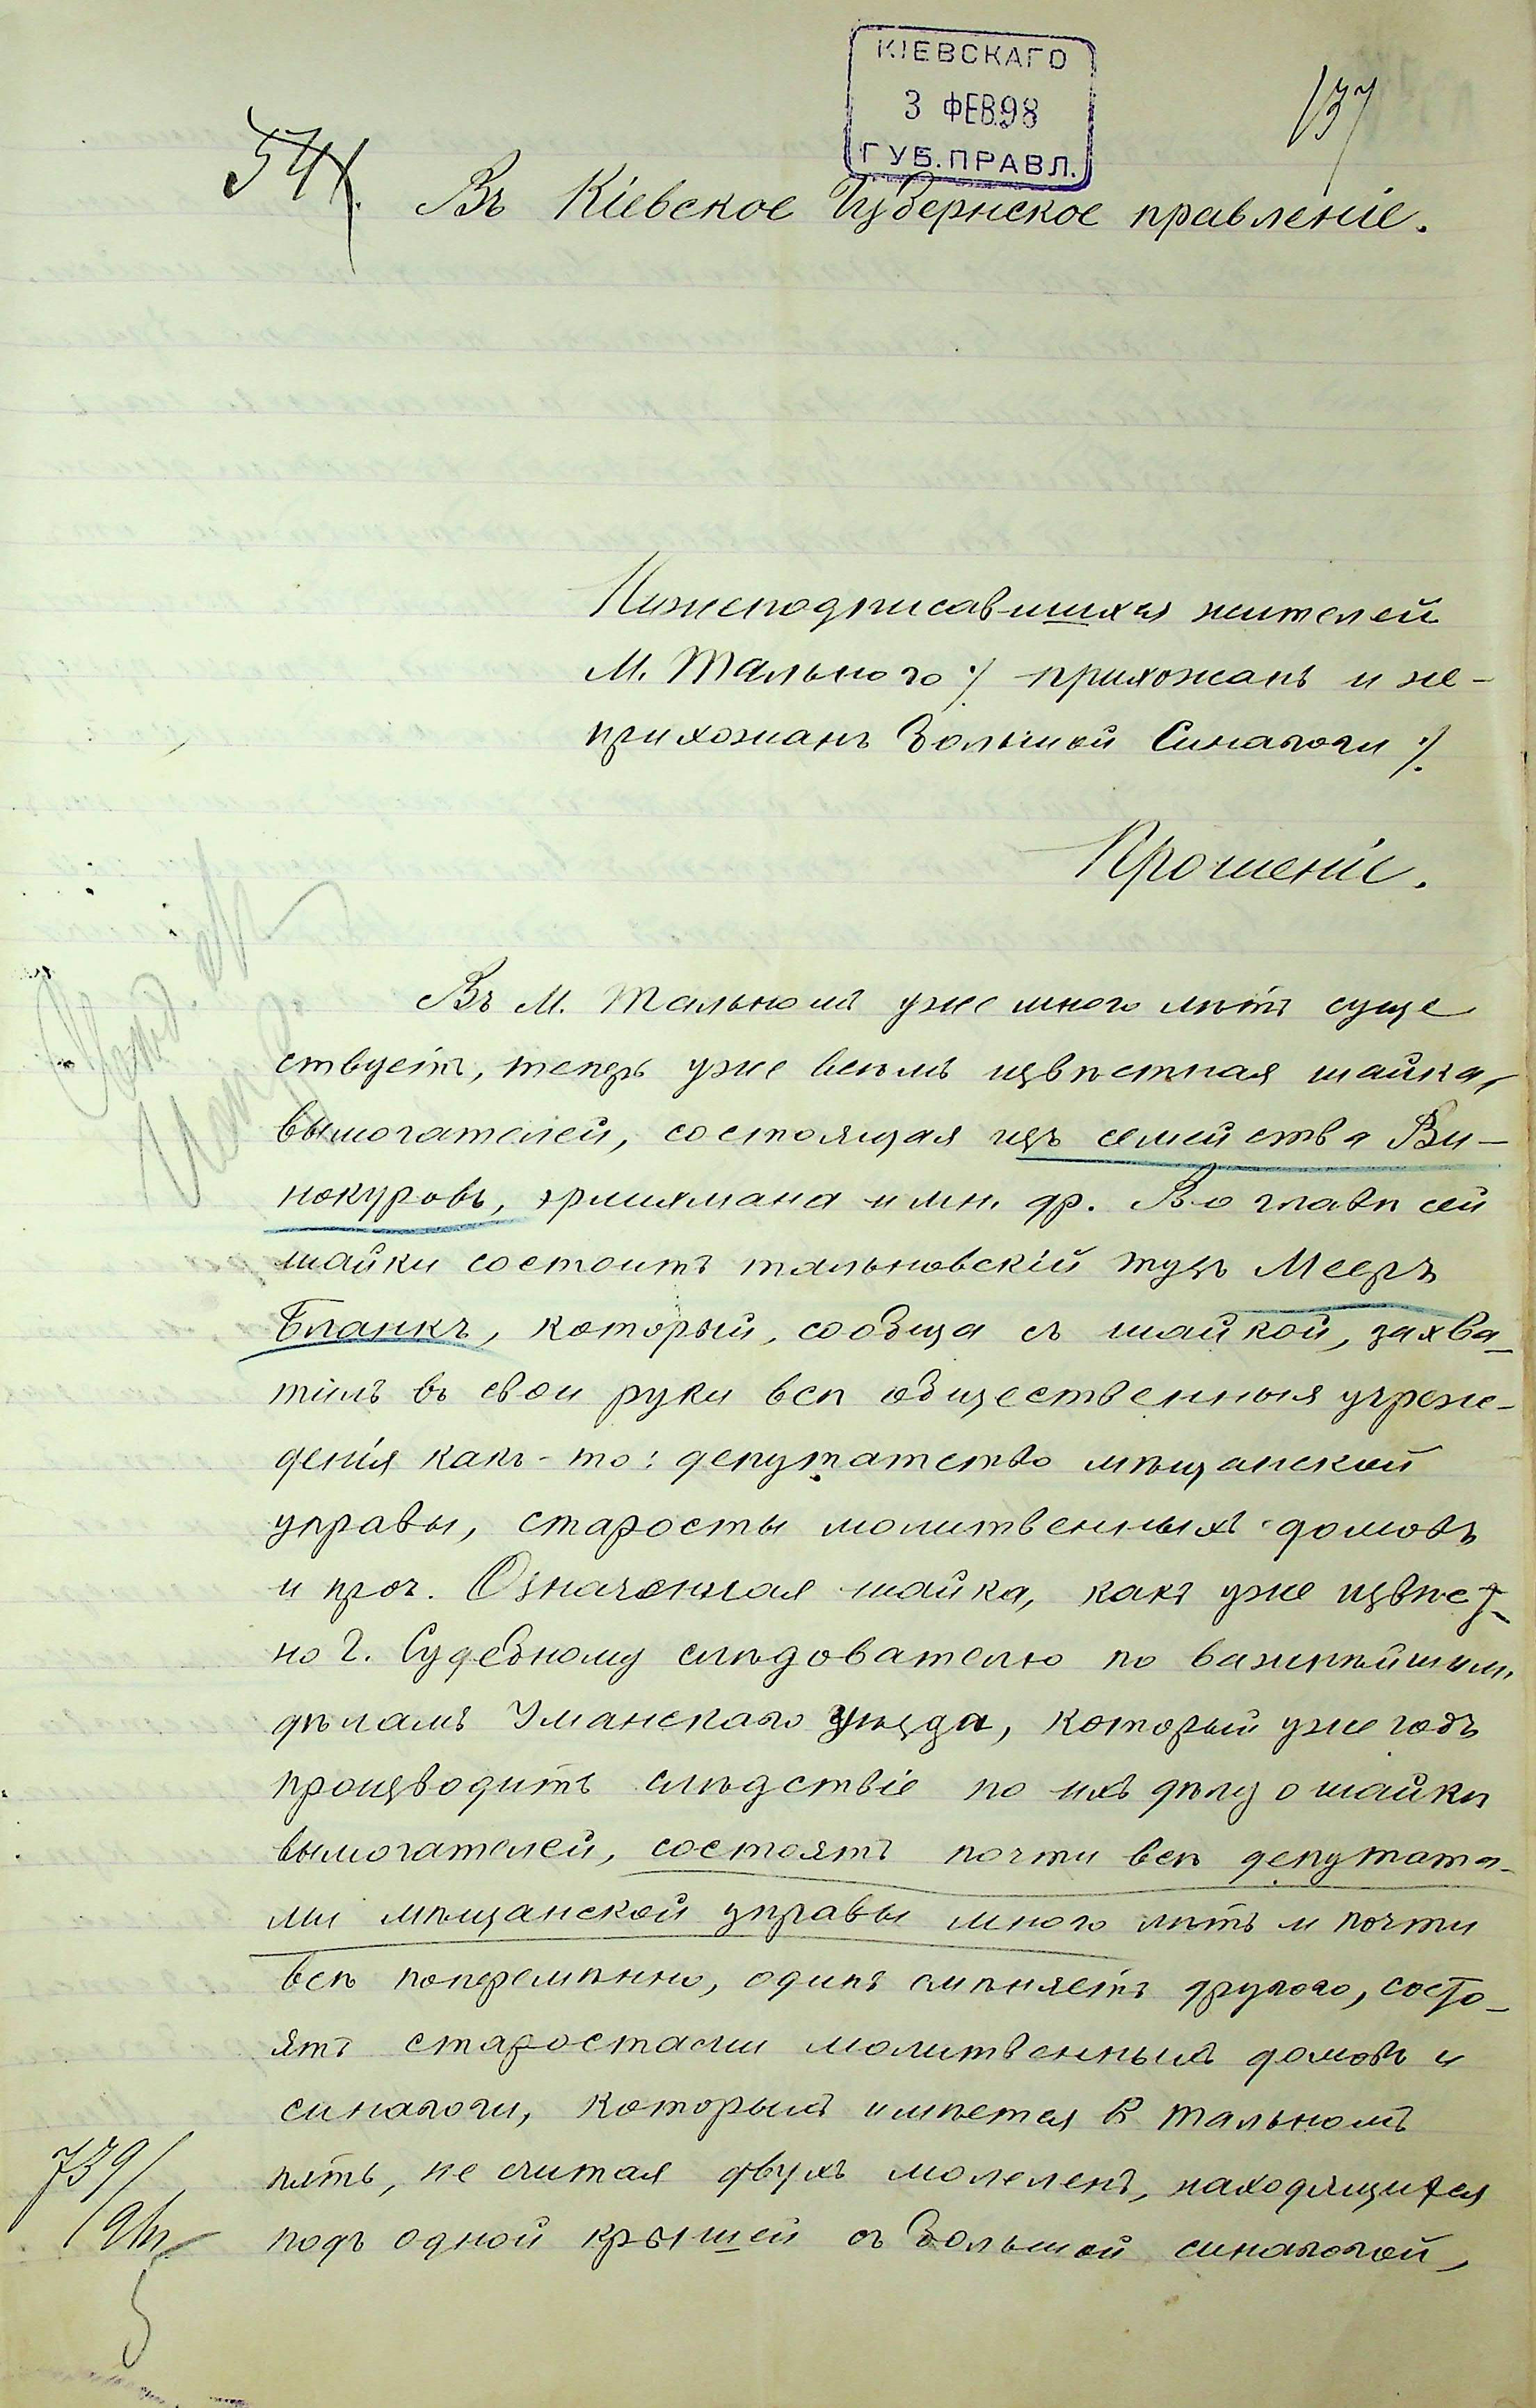 КІЕВСКАГО
3 ФЕВ.98
ГУБ.ПРАВЛ.
137
541.
Въ Кіевское Губернское правленіе.
Нижеподписавшихся жителей
М. Тального ./. прихожанъ и не-
прихожанъ Большой Синагоги ./.
Прошеніе.
Въ М. Тальномъ уже много лѣтъ суще
ствуетъ, теперь уже всѣмъ извѣстная шайка,
вымогателей, состоящая изъ семейства Ви-
нокуровъ, Эрлихмана и мн. др. Во главѣ сей
шайки состоитъ тальновскій тузъ Мееръ
Бланкъ, который, сообща съ шайкой, захва-
тилъ въ свои руки всѣ общественныя учреж-
денія какъ-то: депутатство мѣщанской
управы, старосты молитвенныхъ домовъ
и проч. Означенная шайка, какъ уже извѣст-
но Г. Судебному слѣдователю по важнѣйшимъ
дѣламъ Уманскаго уѣзда, который уже годъ
производитъ слѣдствіе по ихъ дѣлу о шайкѣ
вымогателей, состоятъ почти всѣ депутата-
ми мѣщанской управы много лѣтъ и почти
всѣ поперемѣнно, одинъ смѣняетъ другого, состо-
ятъ старостами молитвенныхъ домовъ и
синагоги, которыхъ имѣется в Тальномъ
пять, не считая двухъ молеленъ, находящихся
подъ одной крышей съ Большой синагогой,
739/